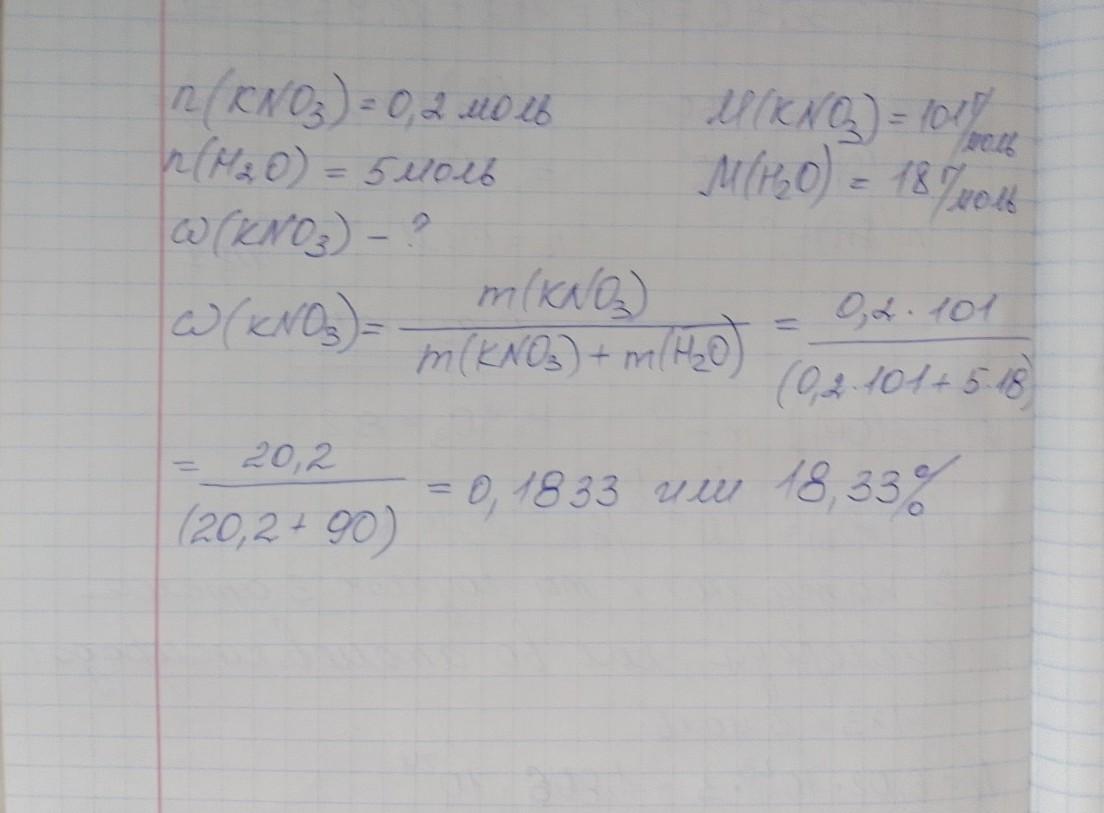 n(KNO3) = 0,2 моль M(KNO3) = 101 г/моль
n(H2O) = 5 моль M(H2O) = 18 г/моль
ω(KNO3) – ?
ω(KNO3) = m(KNO3) / m(KNO3) + m(H2O) = 0,2 · 101 / (0,2 · 101 + 5 · 18)
= 20,2 / (20,2 + 90) = 0,1833 или 18,33%